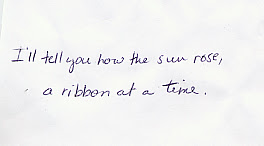 I'll tell you how the sun rose,
a ribbon at a time.